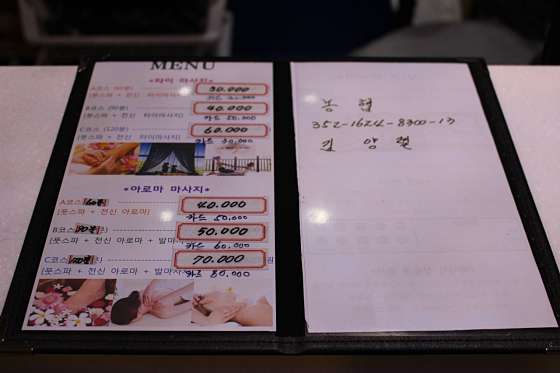 MENU
*타이 마사지*
A코스 (60분) 30.000
(풋스파 + 전신 타이마사지) 카드
B코스 (90분) 40.000
(풋스파 + 전신 타이마사지) 카드 50.000
C코스 (120분) 60.000
(풋스파 + 전신 타이마사지) 카드
*아로마 마사지*
A코스 40.000
(풋스파 + 전신 아로마) 카드 50.000
B코스 50.000
(풋스파 + 전신 아로마 + 발마사 카드 60.000
C코스 70.000 원
(풋스파 + 전신 아로마 + 발마사 카드 80.000
농협
352-1624-8300-13
김